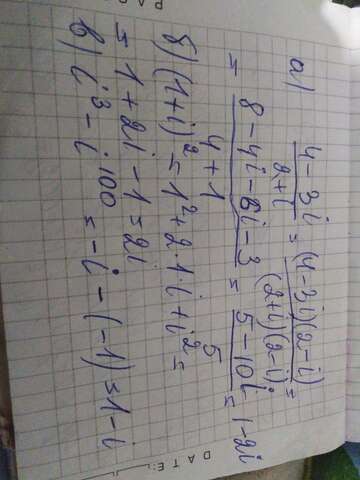 а) (4-3i)/(2+i) = ((4-3i)(2-i))/((2+i)(2-i)) =
= (8-4i-6i-3)/(4+1) = (5-10i)/5 = 1-2i
б) (1+i)² = 1²+2·1i+i² =
= 1+2i-1=2i
в) i³-i¹⁰⁰ = -i-(-1)=1-i
DATE: